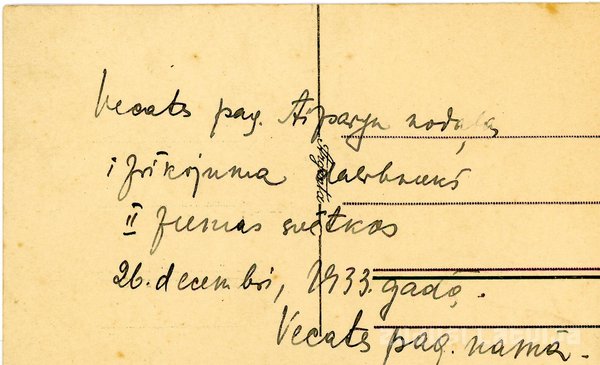 Vecats pag. Aizsargu nodaļas
izrīkojuma dalībnieki
II ziemas svētkos
26. decembrī, 1933. gadā.
Vecats pag. namā.